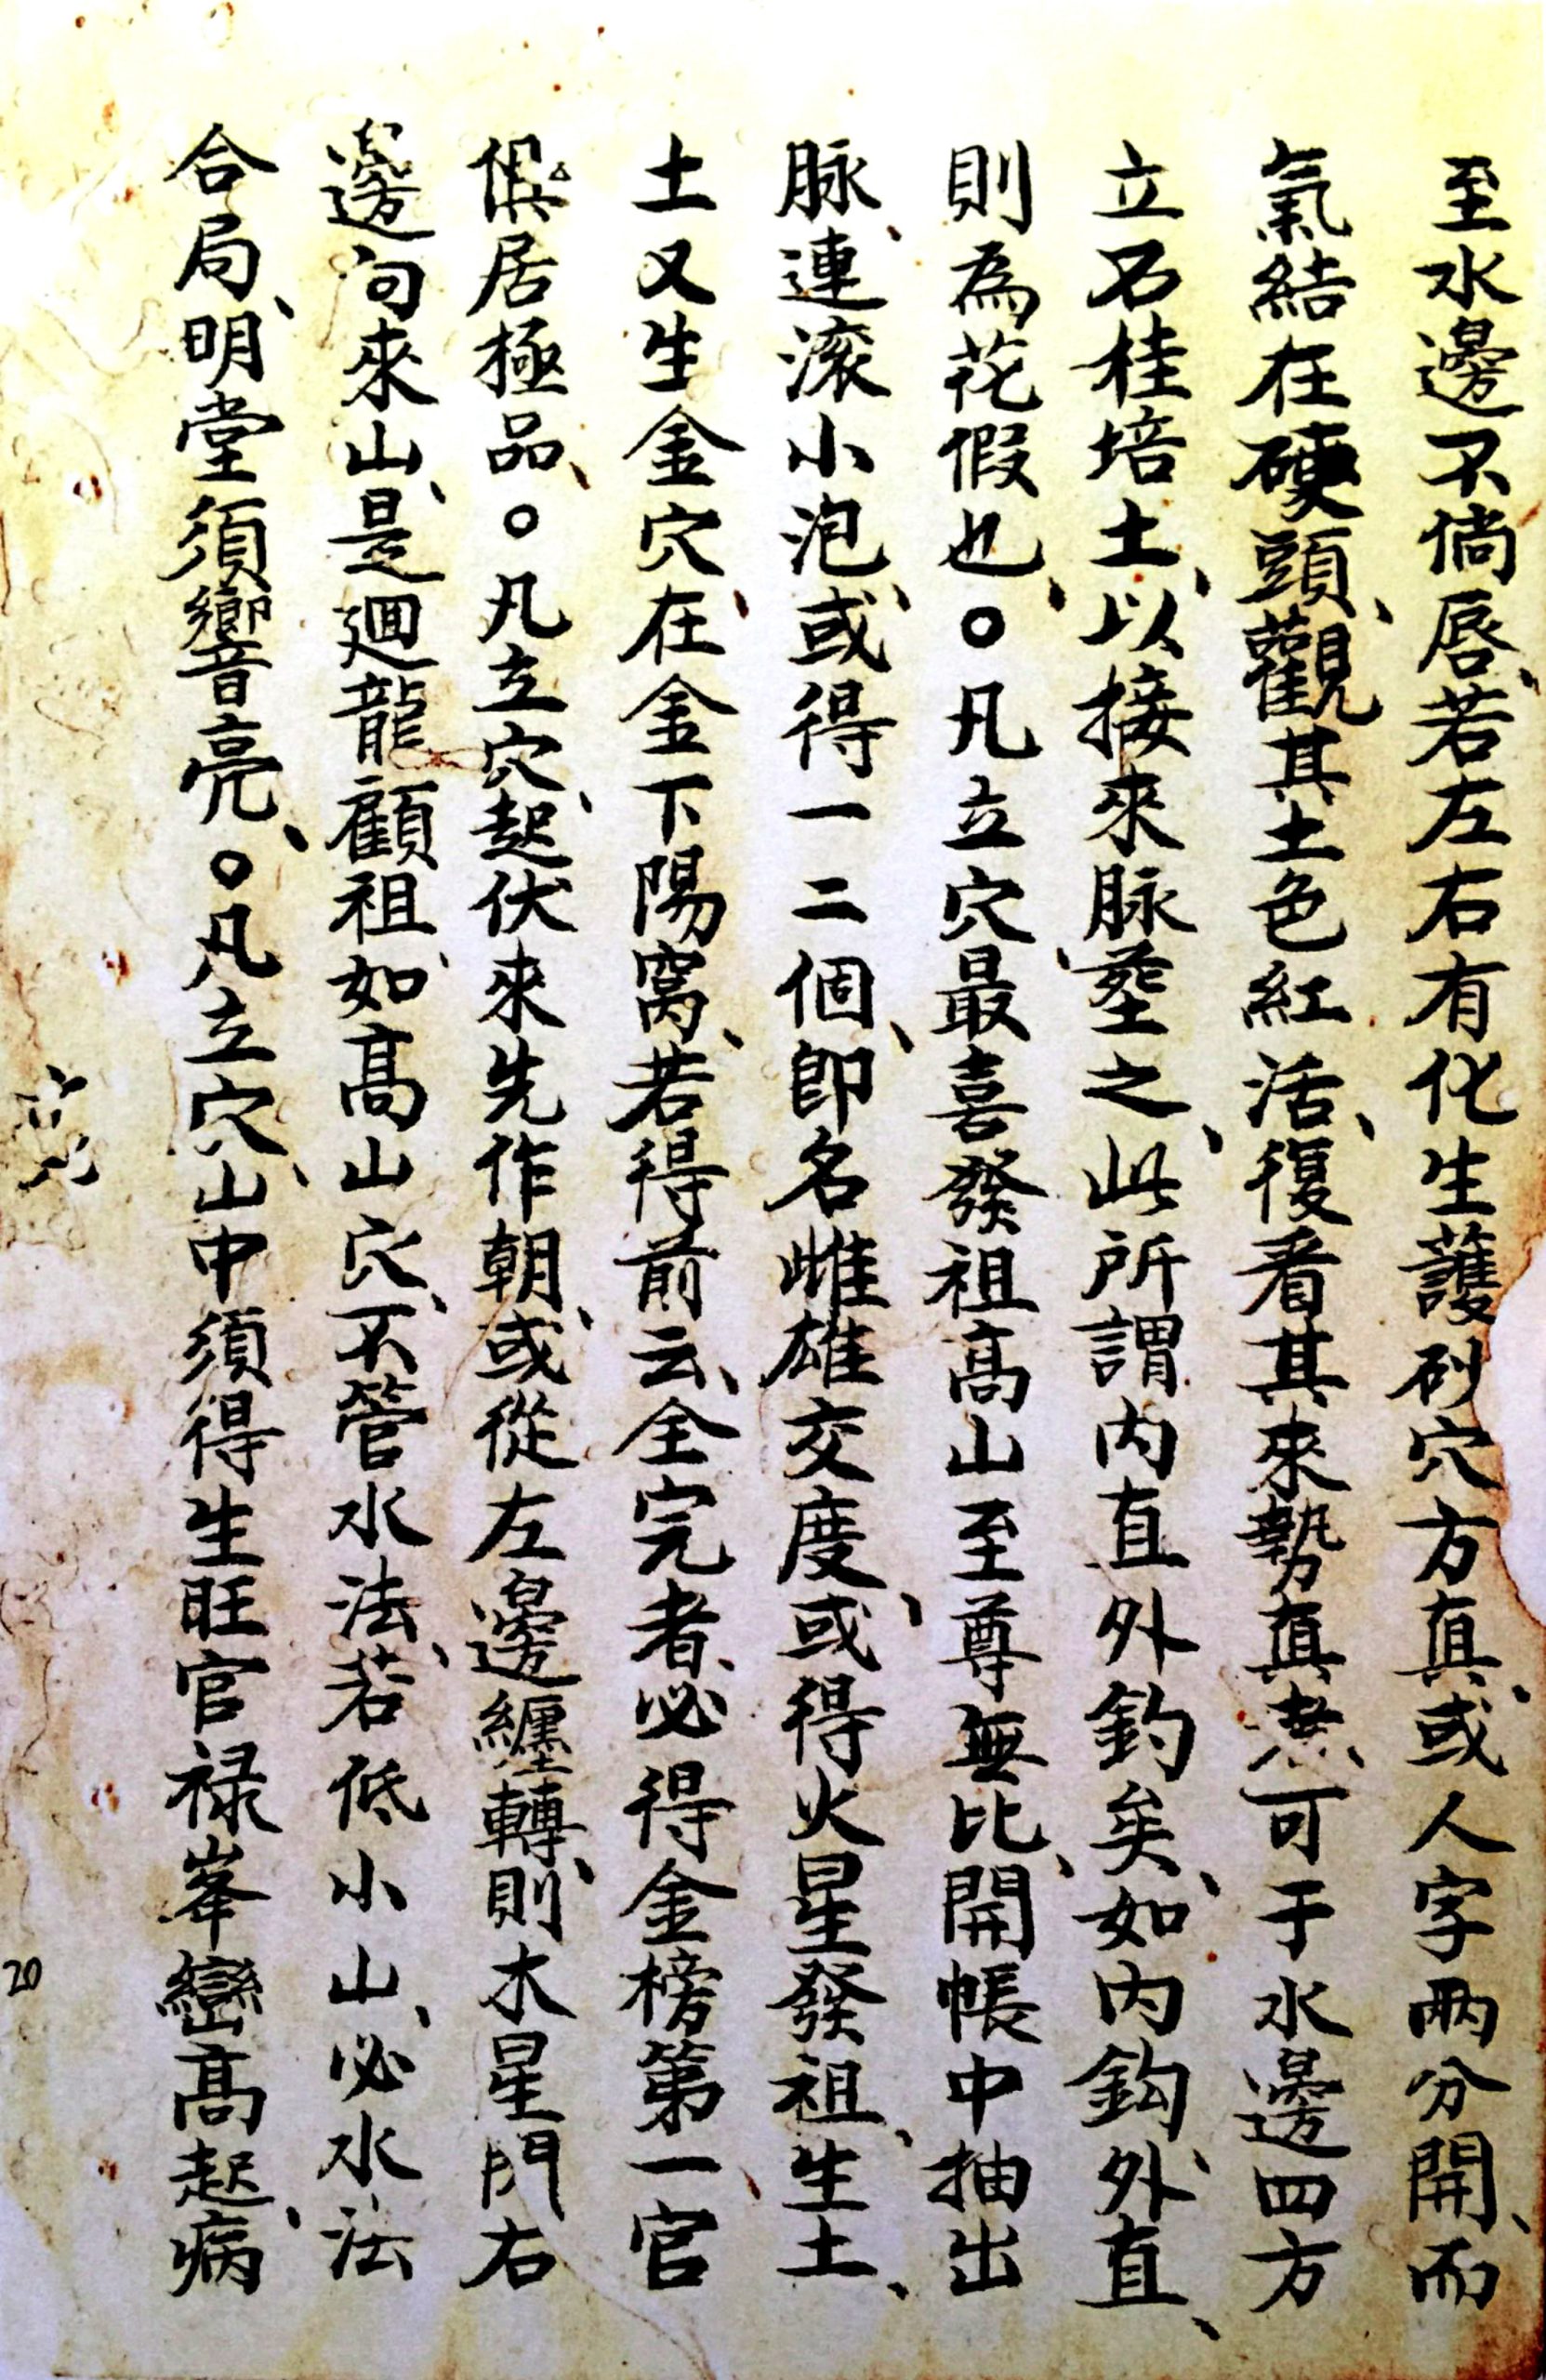 至水邊不倘唇、若左右有化生護砂穴方真、或人字兩分開、而
氣結在硬頭、觀其土色紅活、復看其來勢真、可于水邊四方
立石柱培土、以接來脉、塟之、此所謂內直外鈎矣、如內鈎外直、
則為花假也、○凡立穴最喜發祖高山至尊無比、開帳中抽出
脉、連滚小泡、或得一二個、即名雌雄交度、或得火星發祖、生土、
土又生金穴、在金下陽窩、若得前云、全完者、必得金榜第一官
俱居極品、○凡立穴、起伏來先作朝、或從左邊纏轉、則木星門右
邊向來山、是廻龍顧祖、如高山穴、不管水法、若低小山、必水法
合局、明堂須響亮、○凡立穴、山中須得生旺官禄峯巒高起、病
20